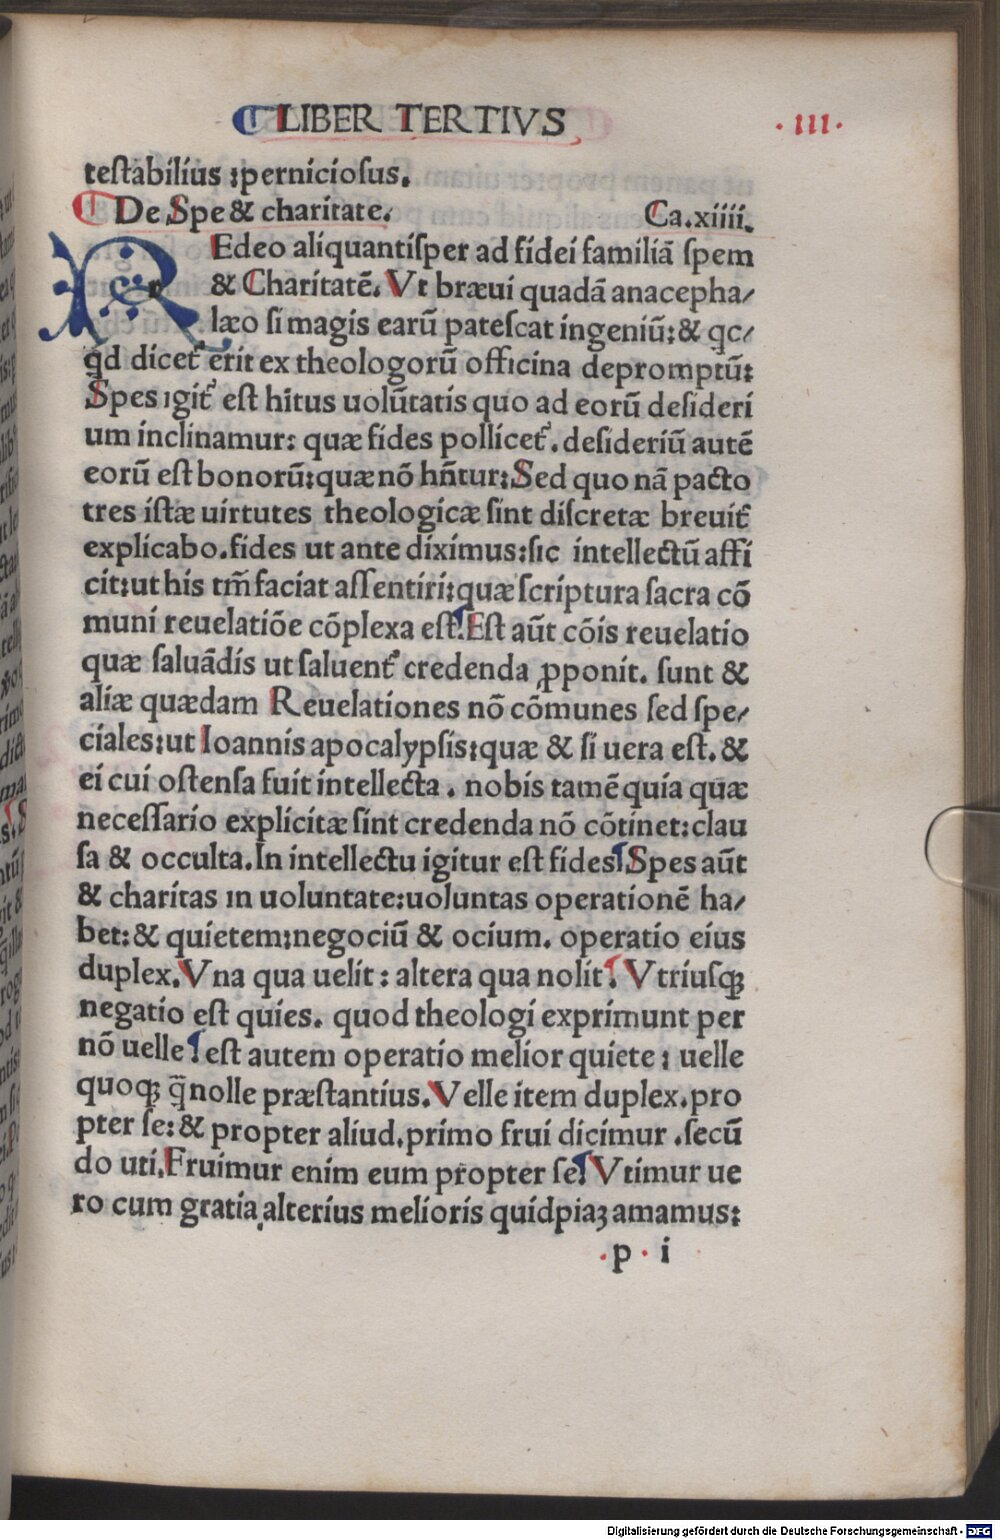 LIBER TERTIVS
·III·
testabilius :perniciosus.
De Spe & charitate. Ca.xiiii.
REdeo aliquantisper ad fidei familiā spem
& Charitatē. Vt bræui quadā anacepha/
læo si magis earū patescat ingeniū: & qc/
qd dicet᷒ erit ex theologorū officina depromptū:
Spes igit᷒ est hitus uolūtatis quo ad eorū desideri
um inclinamur: quæ fides pollicet᷒. desideriū autē
eorū est bonorū: quæ nō hn̄tur: Sed quo nā pacto
tres istæ uirtutes theologicæ sint discretæ breuit᷒
explicabo. fides ut ante diximus: sic intellectū affi
cit: ut his tm̄ faciat assentiri: quæ scriptura sacra cō
muni reuelatiōe cōplexa est. Est aūt cōis reuelatio
quæ saluādis ut saluent᷒ credenda ꝓponit. sunt &
aliæ quædam Reuelationes nō cōmunes sed spe/
ciales: ut Ioannis apocalypsis: quæ & si uera est. &
ei cui ostensa fuit intellecta . nobis tamē quia quæ
necessario explicitæ sint credenda nō cōtinet: clau
sa & occulta. In intellectu igitur est fides. Spes aūt
& charitas in uoluntate: uoluntas operationē ha/
bet: & quietem: negociū & ocium. operatio eius
duplex. Vna qua uelit : altera qua nolit. Vtriusqꝫ
negatio est quies. quod theologi exprimunt per
nō uelle. est autem operatio melior quiete : uelle
quoqꝫ q̄ nolle præstantius. Velle item duplex. pro
pter se: & propter aliud. primo frui dicimur . secū
do uti. Fruimur enim eum propter se. Vtimur ue
ro cum gratia alterius melioris quidpiaꝫ amamus:
.p . i
Digitalisierung gefördert durch die Deutsche Forschungsgemeinschaft - DFG